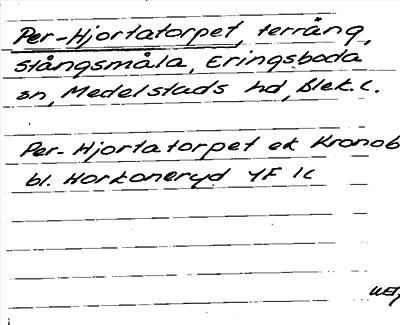 Per-Hjortatorpet, terräng,
Stångsmåla, Eringsboda
sn, Medelstads hd, Blek. l.
Per-Hjortatorpet ek Kronob
bl. Horkoneryd YF 1c